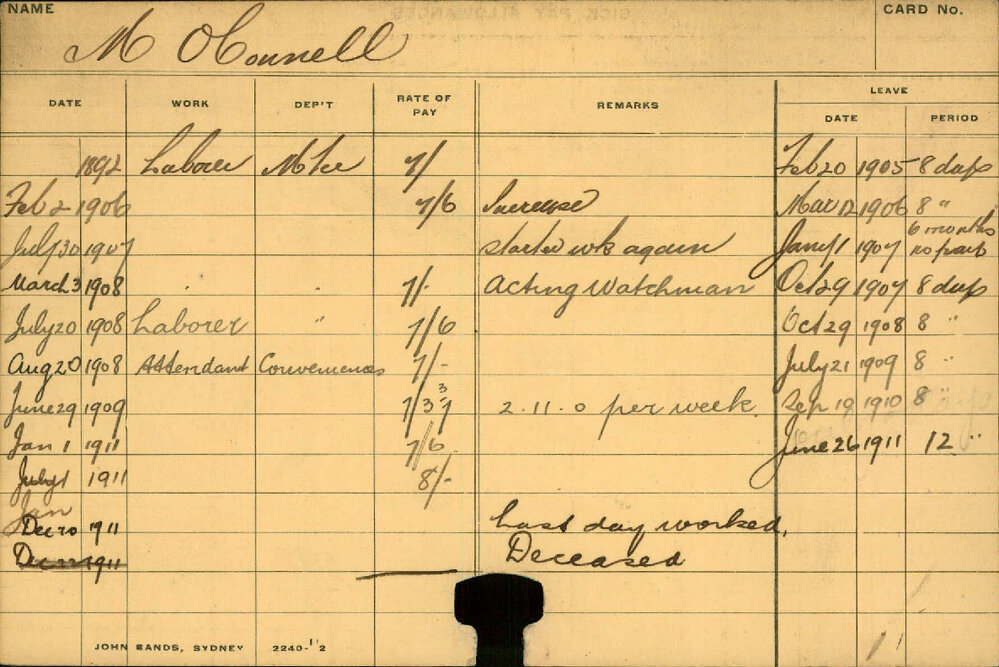 NAME CARD No.
M OConnell
DATE WORK DEP'T RATE OF PAY REMARKS LEAVE
DATE PERIOD
1892 Laborer 7/ Feb 20 1905 8 days
Feb 2 1906 7/6 Increase Mar 12 1906 8 "
July 30 1907 started wk again Jany 1 1907 6 months no pay
March 3 1908 " " 7/- Acting Watchman Oct 29 1907 8 days
July 20 1908 Laborer " 7/6 Oct 29 1908 8 "
Aug 20 1908 Attendant Conveniences 7/- July 21 1909 8 "
June 29 1909 7/3 2.11.0 per week. Sep 19 1910 8 "
Jan 1 1911 7/6 June 26 1911 12 "
July 1 1911 8/-
Jan
Dec 20 1911 Last day worked,
Dec 22 1911 Deceased
JOHN SANDS, SYDNEY 2240-1'2